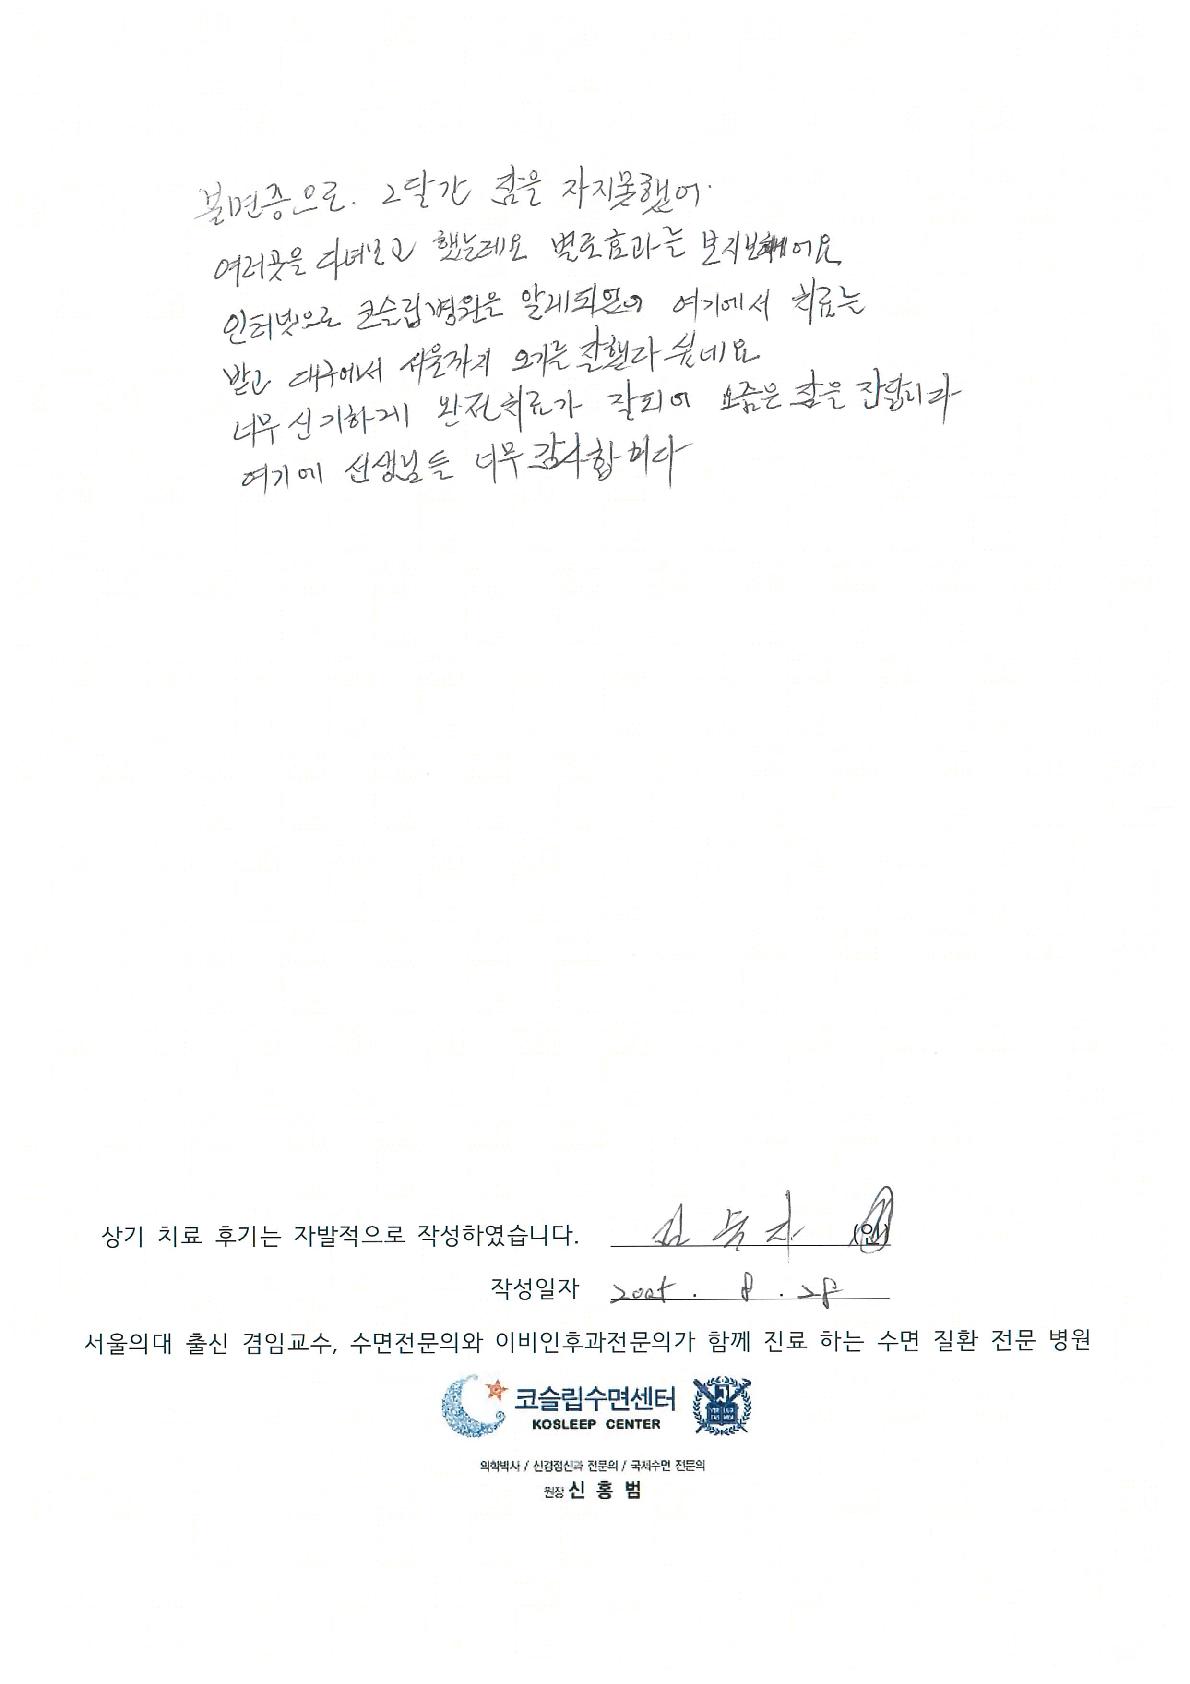 불면증으로. 2달간 잠을 자지못했어.
여러곳을 다녀보고 했는데요 별로효과는 보지못했어요
인터넷으로 코슬립병원은 알게되였어 여기에서 치료는
받고 대구에서 서울까지 오기를 잘했다 싶네요
너무 신기하게 완전치료가 잘되어 요즘은 잠을 잔답니다
여기에 선생님들 너무 감사합니다
상기 치료 후기는 자발적으로 작성하였습니다. 김 (인)
작성일자 8 . 28
서울의대 출신 겸임교수, 수면전문의와 이비인후과전문의가 함께 진료 하는 수면 질환 전문 병원
코슬립수면센터
KOSLEEP CENTER
의학박사 / 신경정신과 전문의 / 국제수면 전문의
원장 신 홍 범